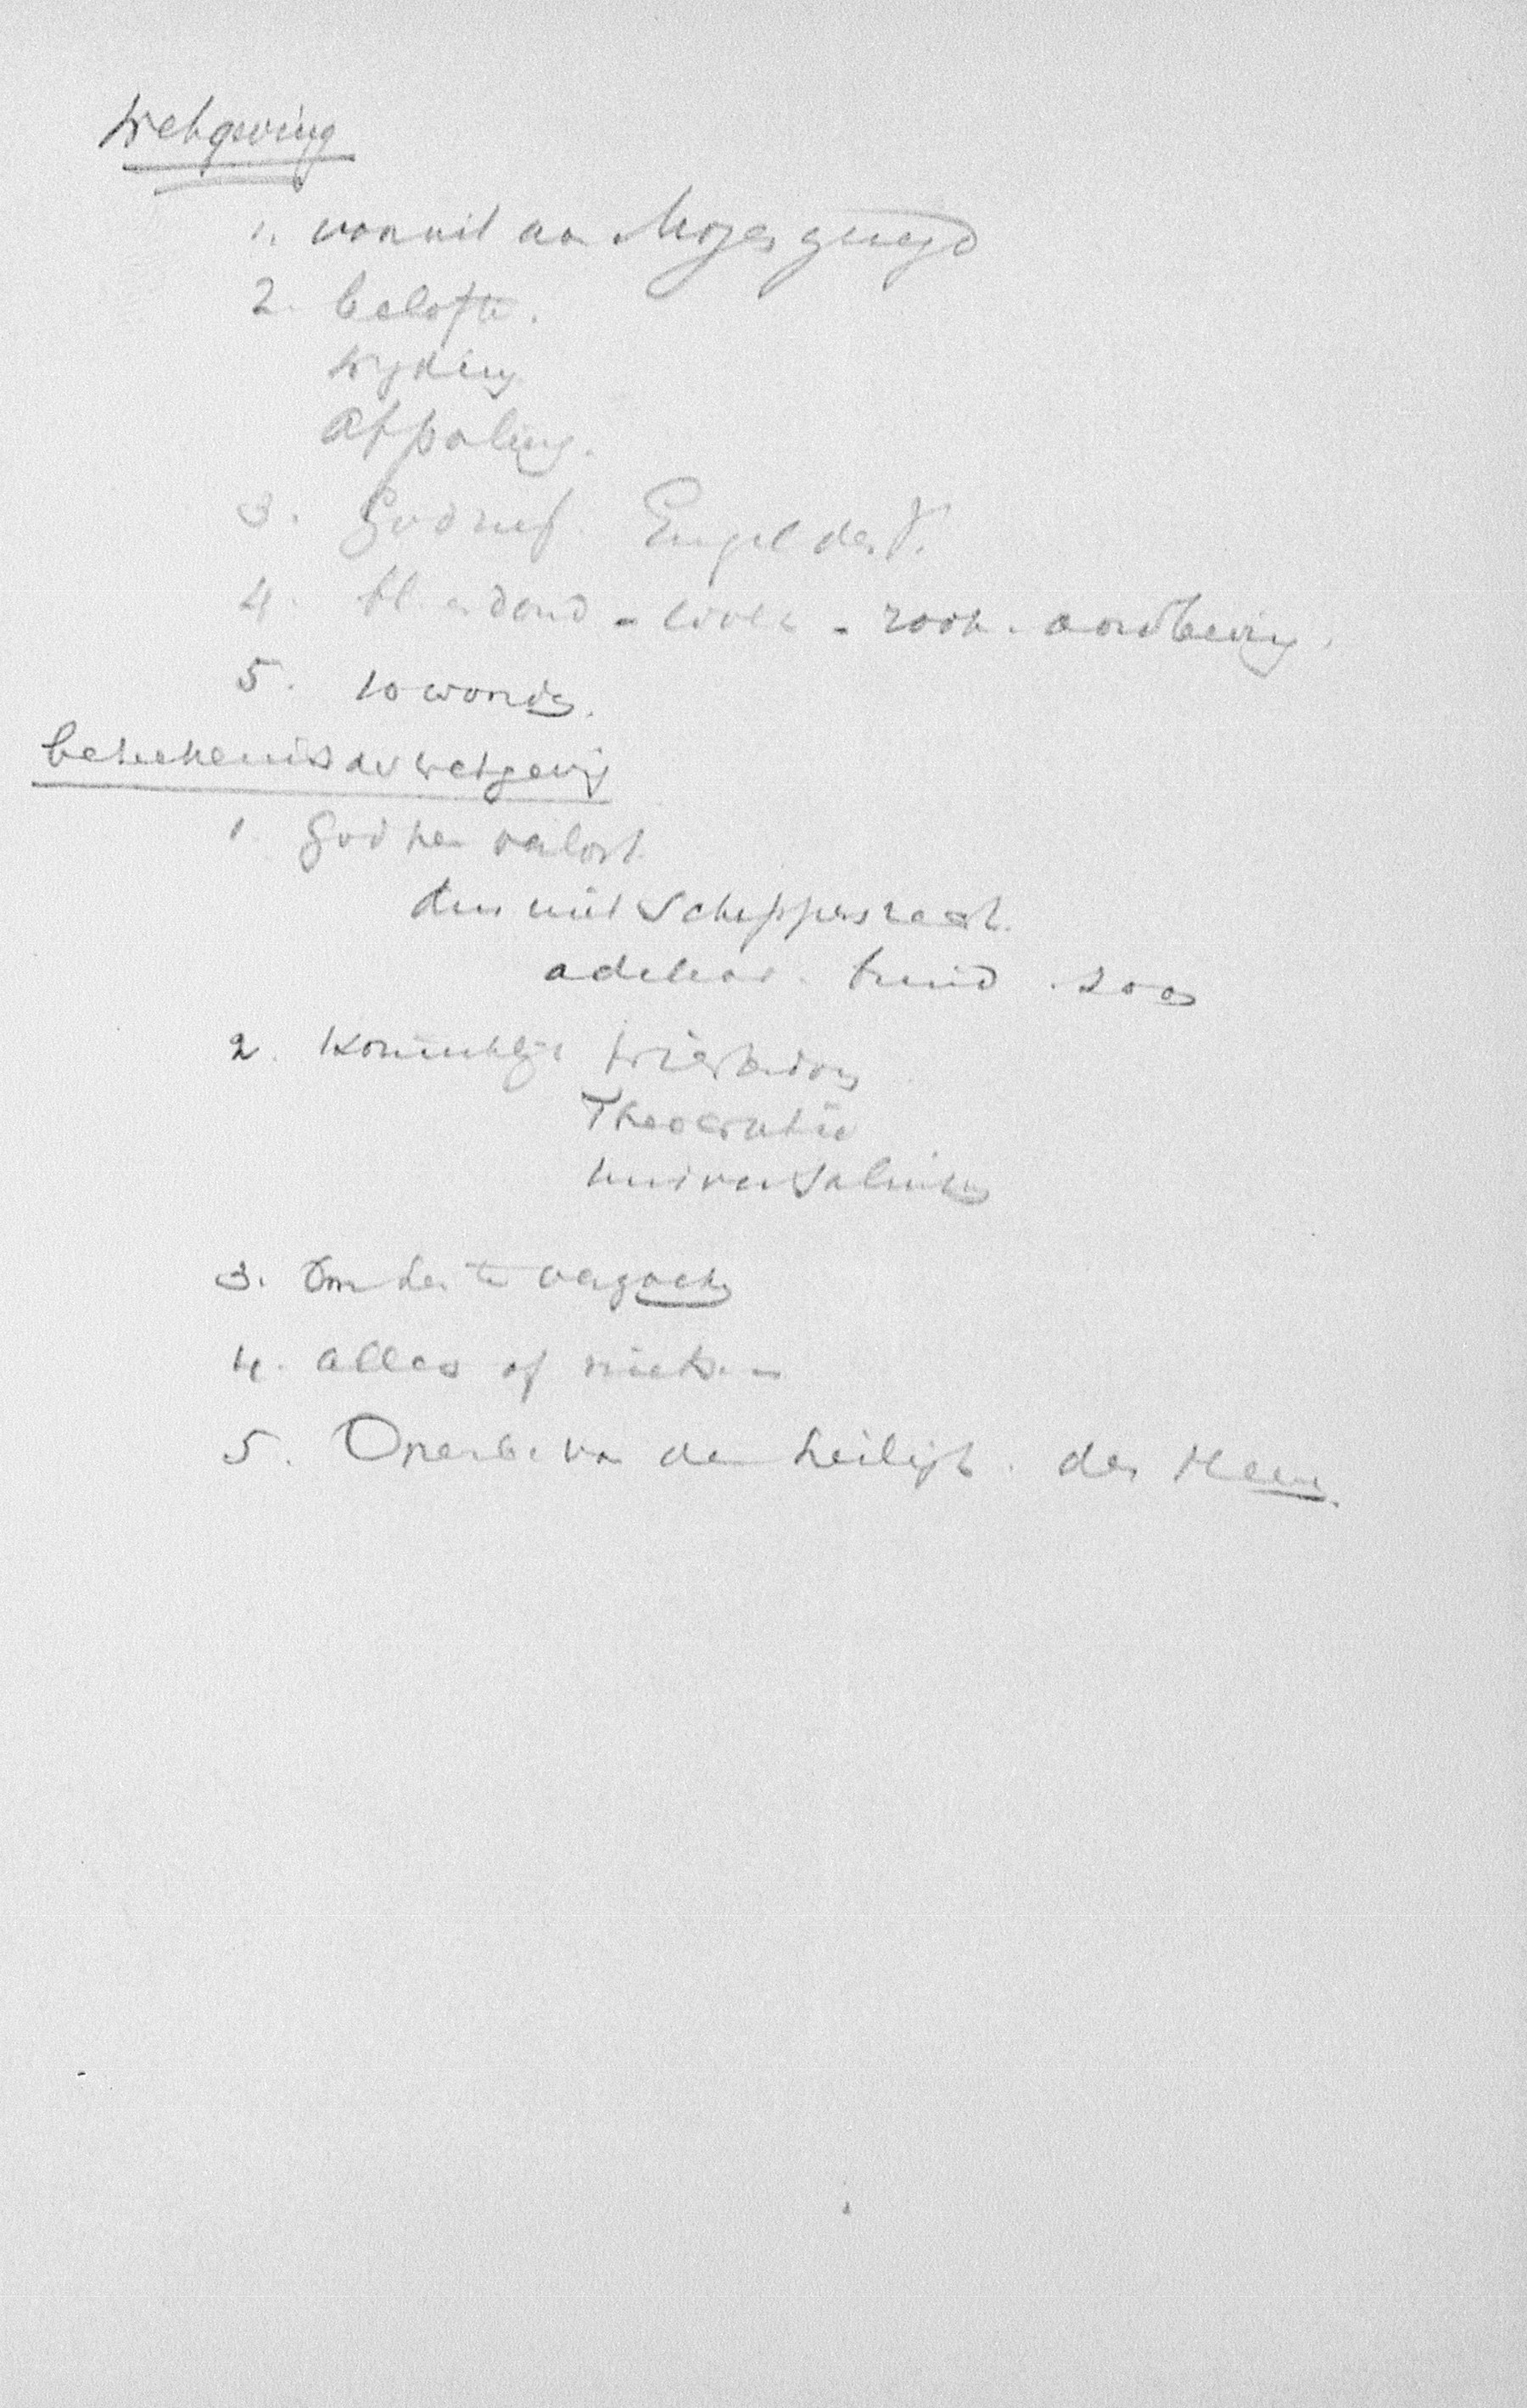 Wetgeving
1. vanuit aan Mozes gezegd
2. belofte.
wyding
Afpaling.
3. God rief. Engel des V.
4. bl. en dond - wolk - rook - aardbeving.
5. 10 woorden.
betekenis der wetgeving
1. God hen verlost
dus niet Scheppersrecht.
adelaar. bruid. zoon
2. Koninklijk Priesterdom
Theocratie
universalisme
3. Om hen te
4. alles of niets. -
5. van de heiligh. des Heeren.